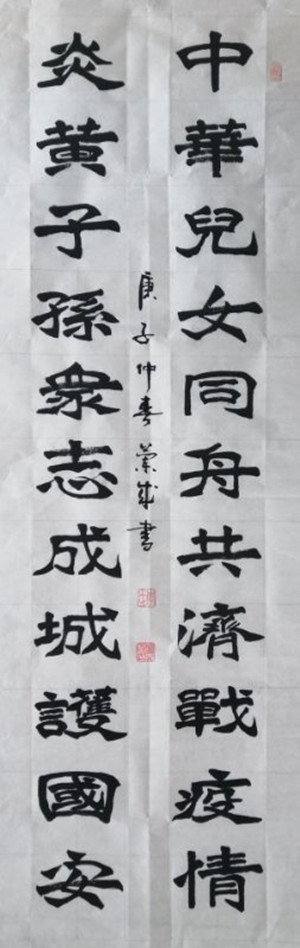 中華兒女同舟共濟戰疫情
炎黃子孫衆志成城護國安
庚子仲春蘭成書